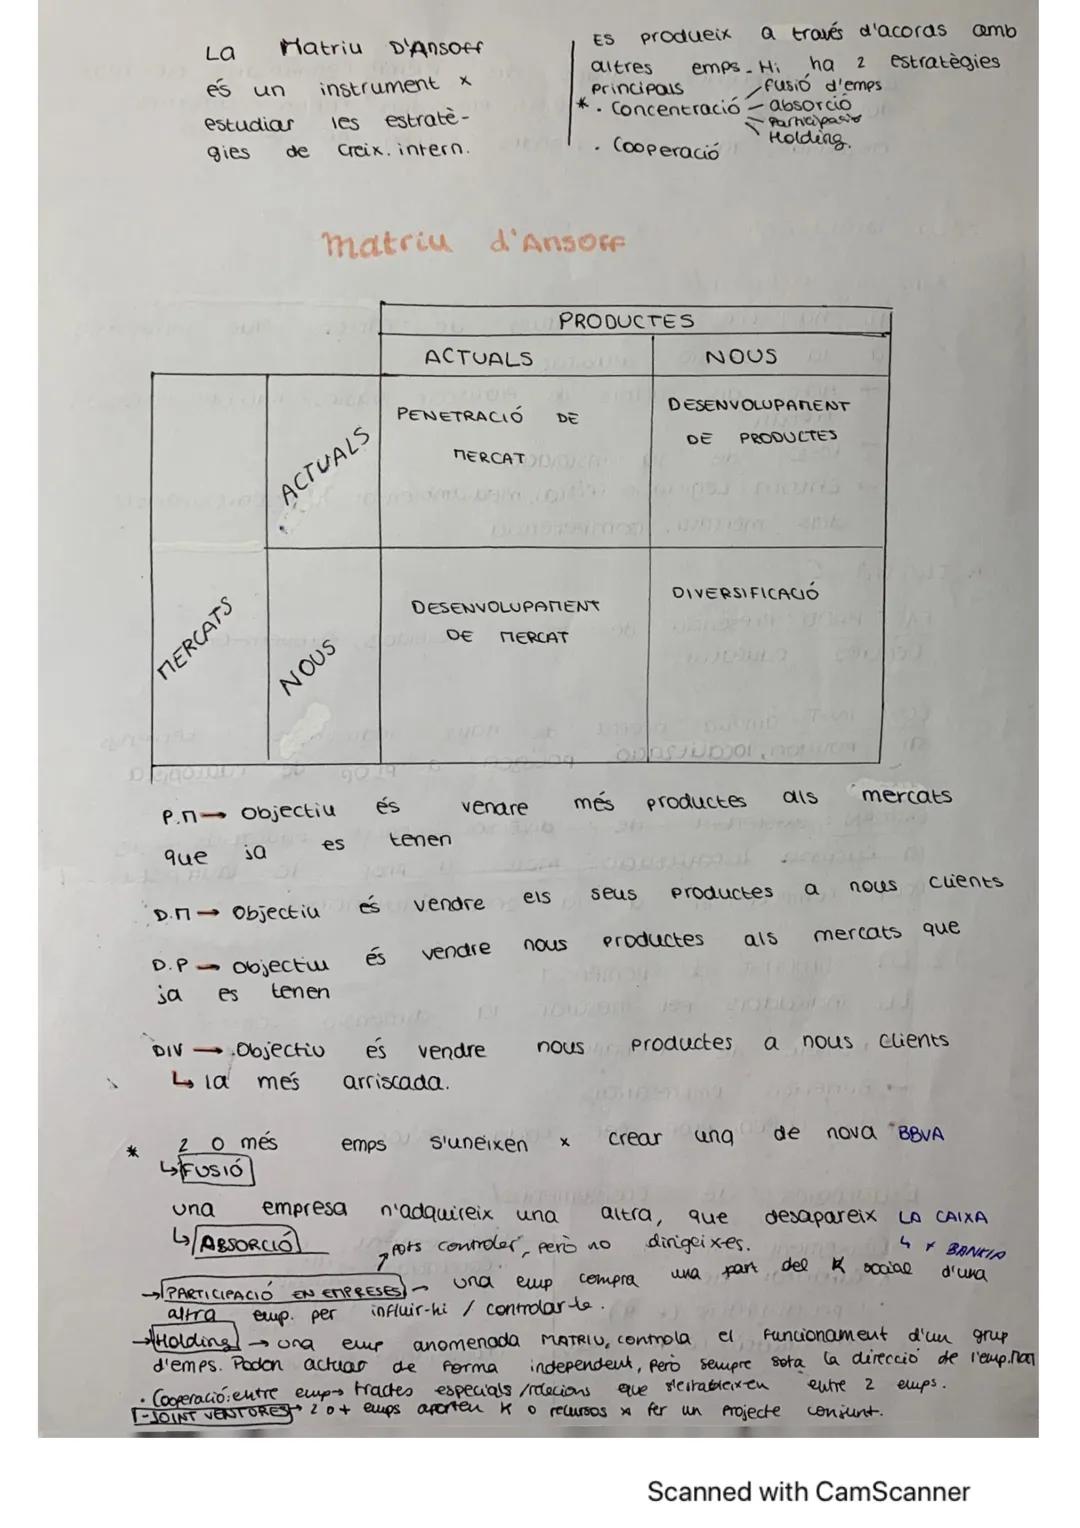 La Matriu D'Ansoff
és un instrument x
estudiar les estratè-
gies de creix. intern.
Es produeix a través d'acords amb
altres emps. Hi ha 2 estratègies
principals
* . Concentració - fusió d'emps
- absorció
- Participació
Holding.
. Cooperació
Matriu d'Ansoff
PRODUCTES
ACTUALS NOUS
MERCATS
ACTUALS
PENETRACIÓ DE
MERCAT
DESENVOLUPAMENT
DE PRODUCTES
NOUS
DESENVOLUPAMENT
DE MERCAT
DIVERSIFICACIÓ
P.M → Objectiu és vendre més productes als mercats
que ja es tenen
D.M → Objectiu és vendre els seus productes a nous clients
D.P → Objectiu és vendre nous productes als mercats que
ja es tenen
DIV → Objectiu és vendre nous productes a nous clients
↳ la més arriscada.
* 2 o més emps s'uneixen x crear una de nova BBVA
↳ FUSIÓ
una empresa n'adquireix una altra, que desapareix LA CAIXA
↳ ABSORCIÓ
↳ x BANKIA
↗ pots controlar, però no dirigeixes.
→ PARTICIPACIÓ EN EMPRESES → una emp compra una part del K social d'una
altra emp. per influir-hi / controlar-la.
→ Holding → una emp anomenada MATRIU, controla el funcionament d'un grup
d'emps. Poden actuar de forma independent, però sempre sota la direcció de l'emp.Mat
. Cooperació: entre emp → tractes especials /relacions que s'estableixen entre 2 emps.
- JOINT VENTURES → 2 o + emps aporten K o recursos x fer un projecte conjunt.
Scanned with CamScanner